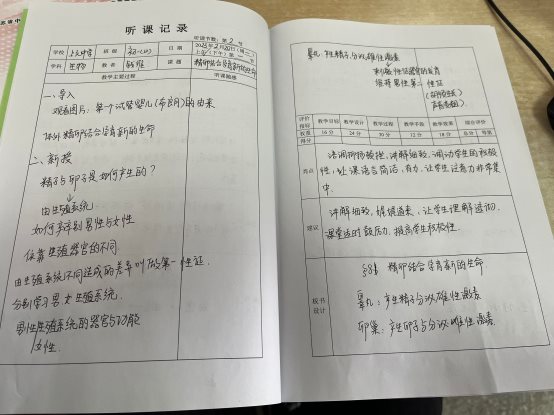 听课记录
听课节数：第 2 节
学校 上大中学 班级 初一(2) 日期 2023年2月20日(周一)
上午(下午)第 节
学科 生物 教者 课题 精卵结合孕育新的生命
教学主要过程 听课随感
一、导入
观看图片：第一个试管婴儿(布朗)的由来
体外精卵结合孕育新的生命
二、新授
精子与卵子是如何产生的？
由生殖系统
如何辨别男性与女性
依靠生殖器官的不同.
由生殖系统不同造成的差异叫做第一性征.
分别学习男女生殖系统.
男性生殖系统的器官与功能
女性.
睾丸：产生精子，分泌雄性激素
刺激性征器官的发育
维持男性第二性征
评价指标 教学目标 教学设计 教学过程 教学手段 教学效果 综合评价
权重 16分 24分 30分 12分 18分 总分 等第
得分
亮点
语调抑扬顿挫，讲解细致，调动学生的积极
性，处课语言简洁，有力，让学生注意力非常集
中.
建议
讲解细致，循循善诱，让学生理解透彻.
课堂适时鼓励，提高学生积极性.
板书设计
§8.1 精卵结合孕育新的生命
睾丸：产生精子分泌雄性激素
卵巢：产生卵子与分泌雌性激素.